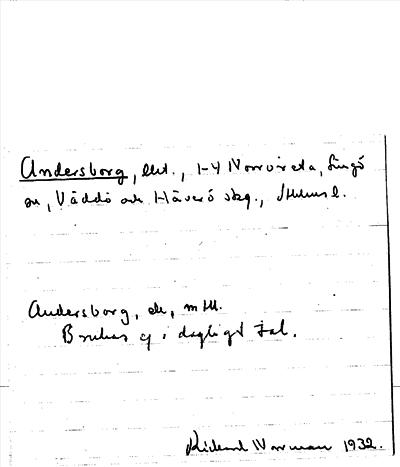 Andersborg, lht., 1-4 Norrvreta, Singö
sn, Väddö och Häverö skg., Sthlms l.
Andersborg, de, mtl.
Brukas ej i dagligt tal.
Rickard Norrman 1932.